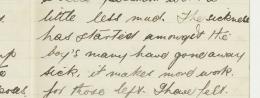 little less mud. The sickness
has started amongst the
boy's many have gone away
sick, it makes more work.
for those left. I have felt